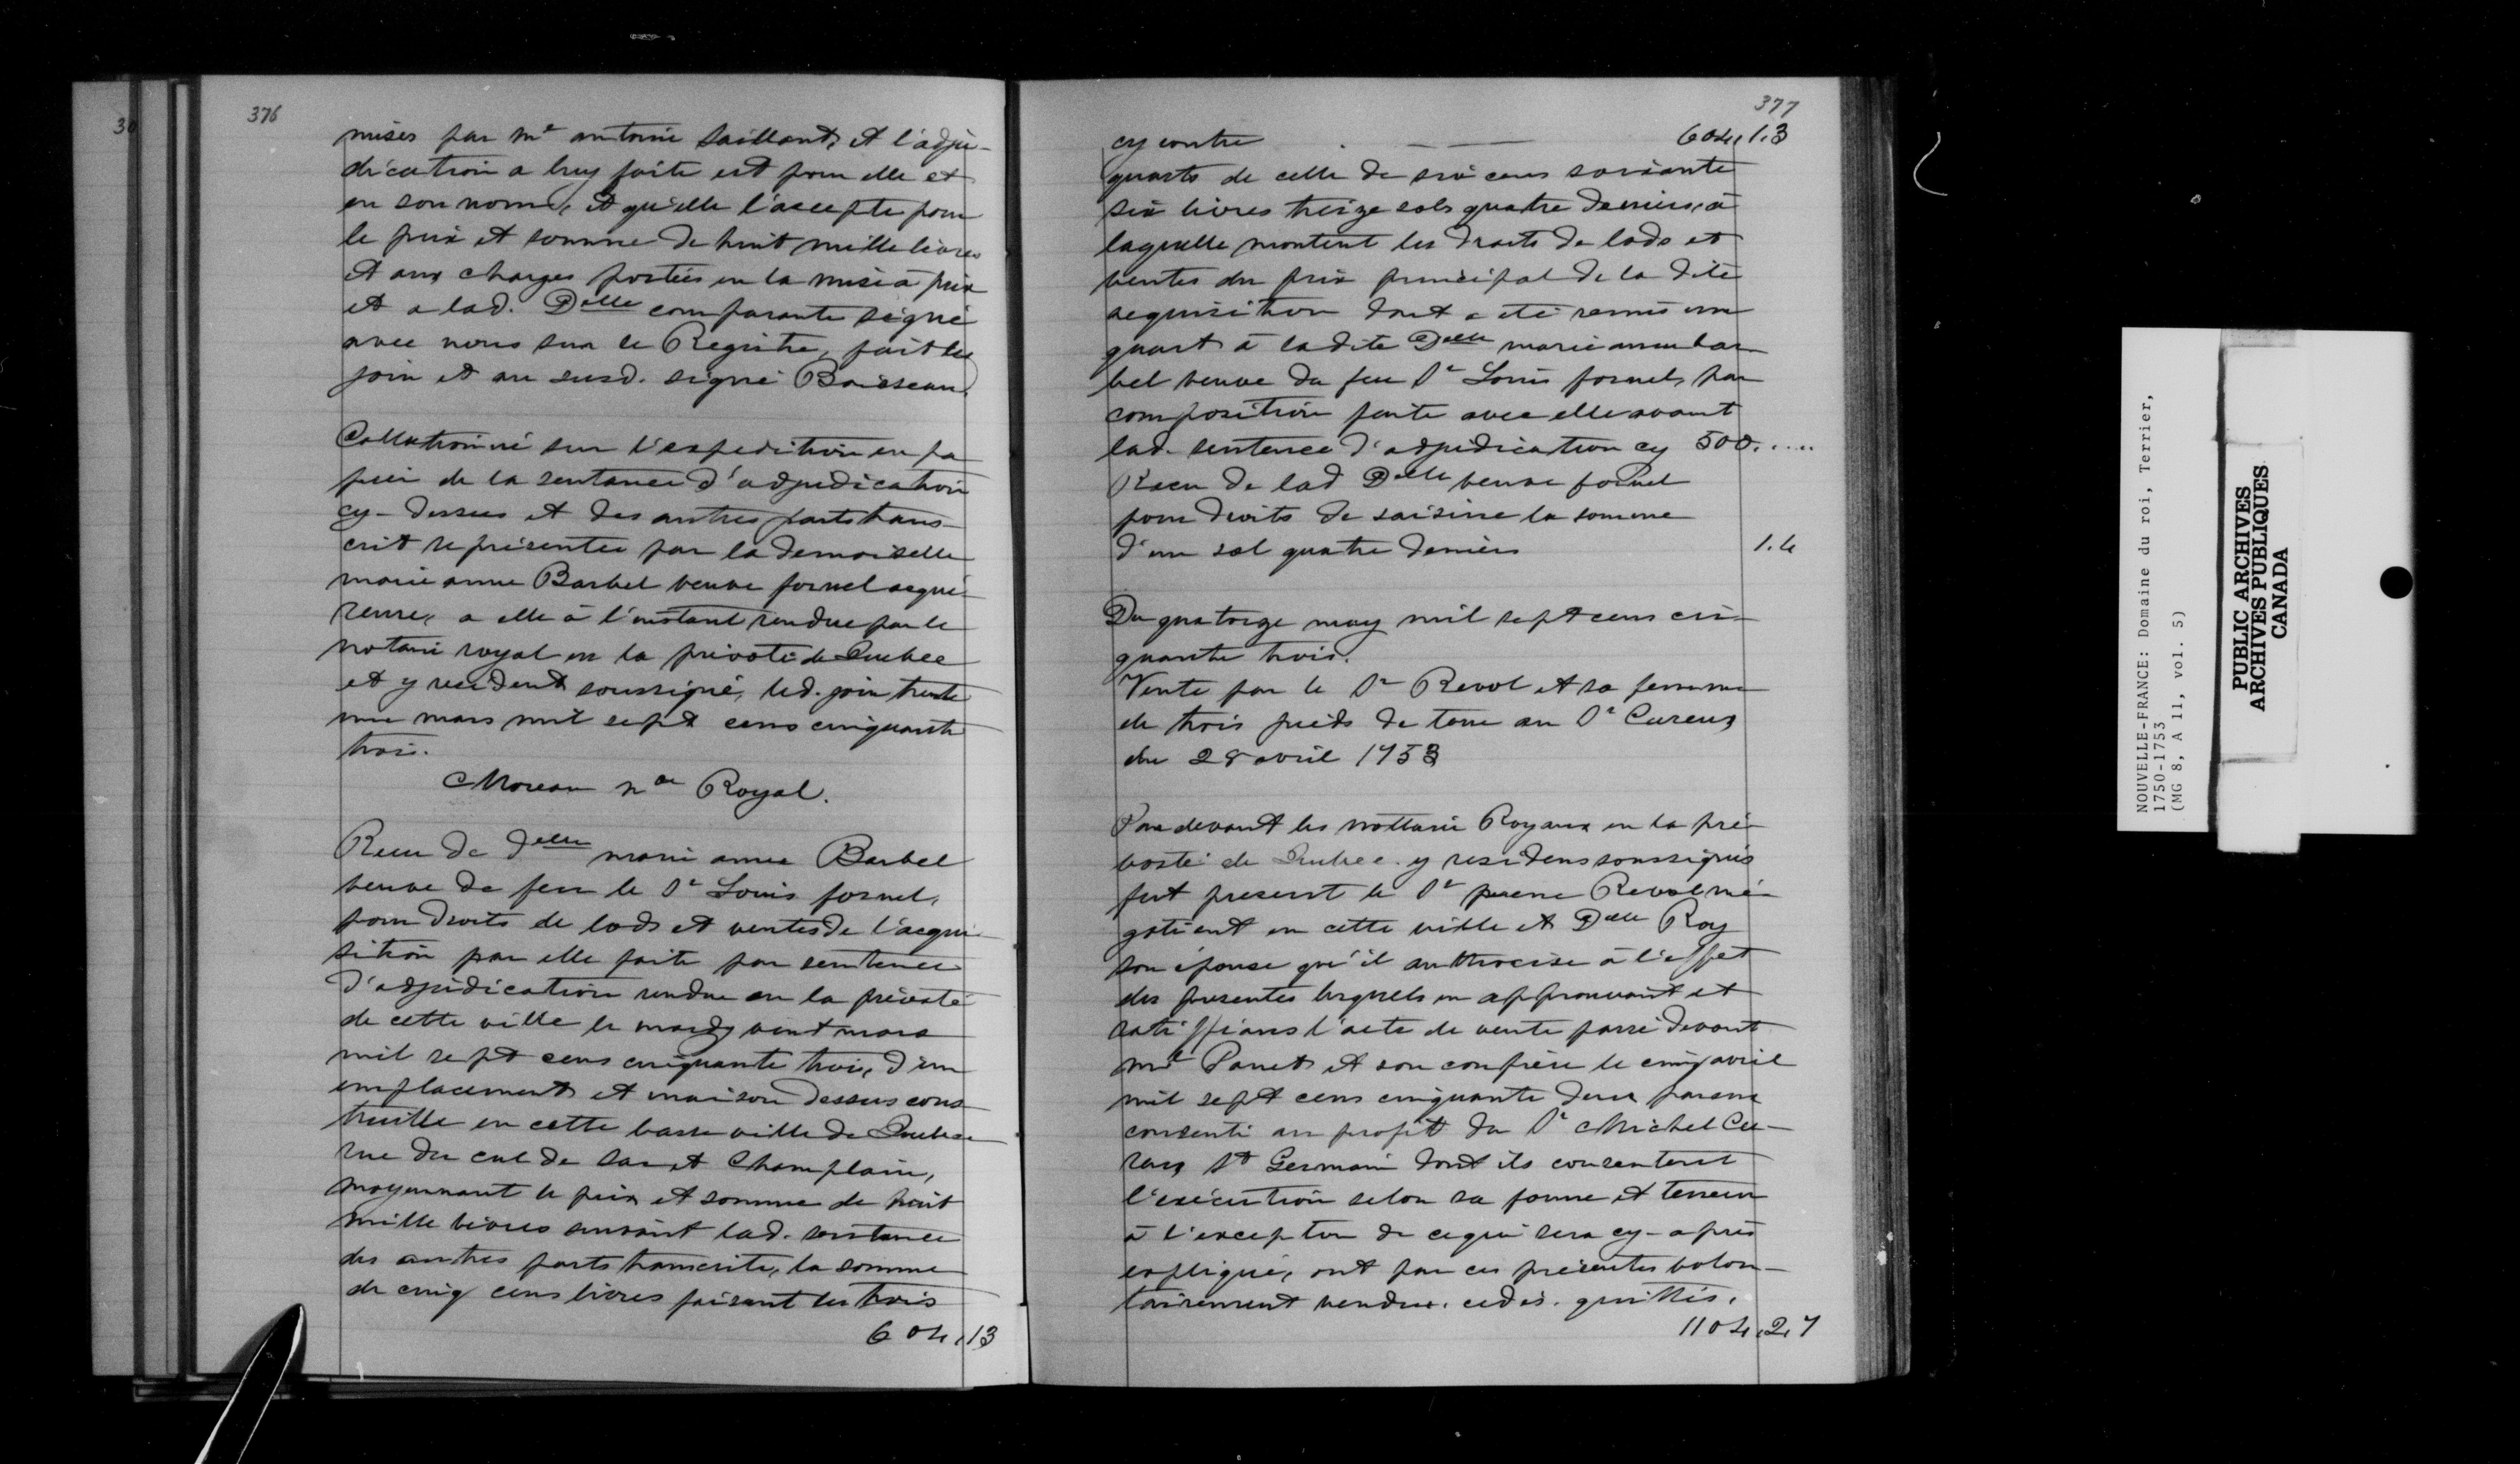 376
mises par Me antoine Saillant, et l'adju-
dication a luy faite est pour elle et
en son nom, et qu'elle l'accepte pour
le prix et somme de huit mille livres
et aux charges portées en la mise à prix
et a lad. Delle comparante signé
avec nous sur le Registre, fait les
jour et an susd. signé Boisseau.
Collationné sur l'expedition en pa
pier de la sentance d'adjudication
cy-dessus et des autres parts trans-
crit representée par la demoiselle
marie anne Barbel veuve fornel acqué-
reuse, a elle à l'instant rendue par le
notaire royal en la prévoté de Quebec
et y resident soussigné, led. jour trente
un mars mil sept cens cinquante
trois.
Moreau nre Royal.
Recu de Delle marie anne Barbel
veuve de feu le Sr Louis fornel,
pour droits de lods et ventes de l'acqui-
sition par elle faite par sentence
d'adjudication rendue en la prévoté
de cette ville le mardy vint mars
mil sept cens cinquante trois, d'un
emplacement et maison dessus cons-
truitte en cette basse ville de Quebec
rue du cul de sac et Champlain,
moyennant le prix et somme de huit
mille livres suivant lad. sentence
des autres parts transcrite, la somme
de cinq cens livres faisant les trois
604,13
377
cy contre 604,1.3
quarts de celle de six cens soixante
six livres treize sols quatre deniers, à
laquelle montent les droits de lods et
ventes du prix principal de la dite
acquisition dont a été remis un
quart à ladite Delle marie anne bar
bel veuve du feu Sr Louis fornel, par
composition faite avec elle avant
lad. sentence d'adjudication cy 500.....
Recu de lad Delle veuve fornel
pour droits de saisine la somme
d'un sol quatre deniers 1.4
Du quatorze may mil sept cens cin-
quante trois.
Vente par le Sr Revol et sa femme
de trois pieds de terre au Sr Cureux
du 28 avril 1753
Par devant les nottaire Royaux en la pré-
vosté de Quebec y residens soussignés
fut present le Sr pierre Revol né-
gotient en cette ville et Delle Roy
son épouse qu'il authorise à l'effet
des presentes lesquels en approuvant et
ratiffians l'acte de vente passé devant
Me Panet et son confrère le cinq avril
mil sept cens cinquante deux par eux
consenti au profit du Sr Michel Cu-
reux St Germain dont ils consentent
l'exécution selon sa forme et teneur
à l'exception de ce qui sera cy-après
expliqué, ont par ces présentes volon-
tairement vendus, cedés, quittés,
1104,2,7
NOUVELLE-FRANCE: Domaine du roi, Terrier,
1750-1753
(MG 8, A 11, vol. 5)
PUBLIC ARCHIVES
ARCHIVES PUBLIQUES
CANADA